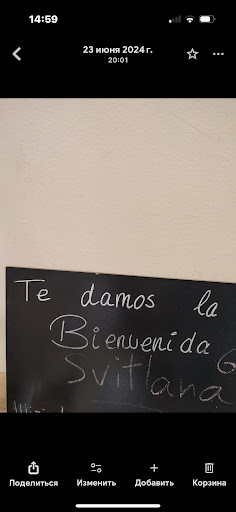 14:59
23 июня 2024 г.
20:01
Te damos la
Bienvenida
Svitlana
Поделиться
Изменить
Добавить
Корзина